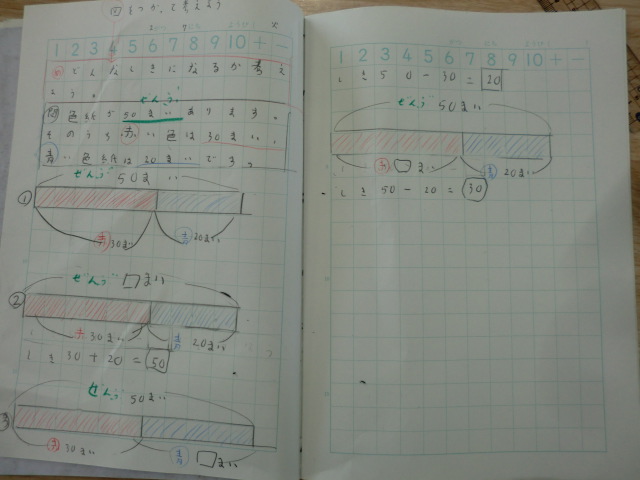 1 2 3 4 5 6 7 8 9 10 + −
め どんなしきになるか考え
よう。
ぜんぶ
問 色紙が50まいあります。
そのうち赤い色は30まい、
青い色紙は20まいです。
ぜんぶ 50まい
①
赤 30まい 青 20まい
ぜんぶ □まい
②
赤 30まい 青 20まい
しき 30+20=50
ぜんぶ 50まい
③
赤 30まい 青 □まい
1 2 3 4 5 6 7 8 9 10 + −
しき 50−30=20
ぜんぶ 50まい
赤 □まい 青 20まい
しき 50−20=30